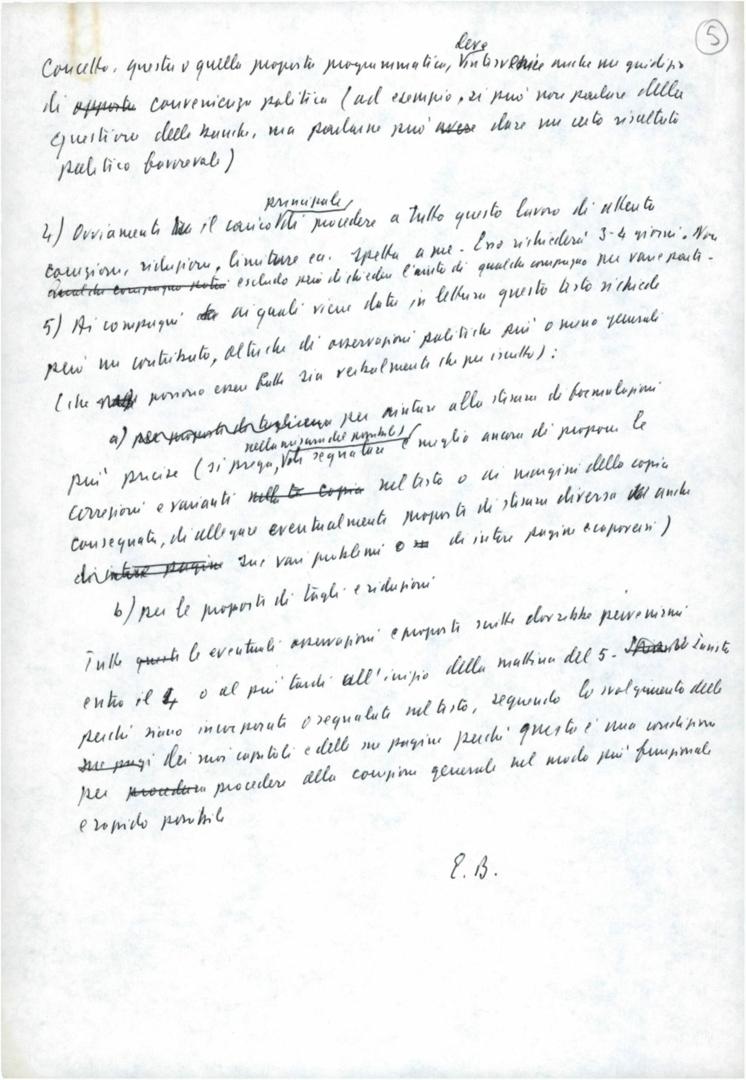 5
deve
concetto, questa o quella proposta programmatica, intervenire anche un giudizio
di opportu convenienza politica (ad esempio, si può non parlare della
questione delle banche, ma parlarne può avere dare un certo risultato
politico favorevole)
principale
4) Ovviamente il carico di procedere a tutto questo lavoro di attenta
correzione, riduzione, limature ecc. spetta a me. Esso richiederà 3-4 giorni. Non
qualche compagno potrà escludo però di chiedere l'aiuto di qualche compagno per varie parti.
5) Ai compagni ai quali viene dato in lettura questo testo richiedo
però un contributo, oltre che di osservazioni politiche più o meno generali
(che possono essere fatte sia verbalmente che per iscritto):
a) per proposte di taglio per aiutare alla stesura di formulazioni
nella misura del possibile,
più precise (si prega, di segnalare e meglio ancora di proporre le
correzioni e varianti nella copia nel testo o ai margini della copia
consegnata, di allegare eventualmente proposte di stesura diversa anche
di intere pagine sui vari problemi o di intere pagine e capoversi)
b) per le proposte di tagli e riduzioni
Tutte queste le eventuali osservazioni e proposte scritte dovrebbe pervenirmi
entro il 4 o al più tardi all'inizio della mattina del 5.
perché siano incorporate o segnalate nel testo, seguendo lo svolgimento delle
sue pagi dei suoi capitoli e delle sue pagine perché questa è una condizione
per procedere procedere alla correzione generale nel modo più funzionale
e rapido possibile
E. B.